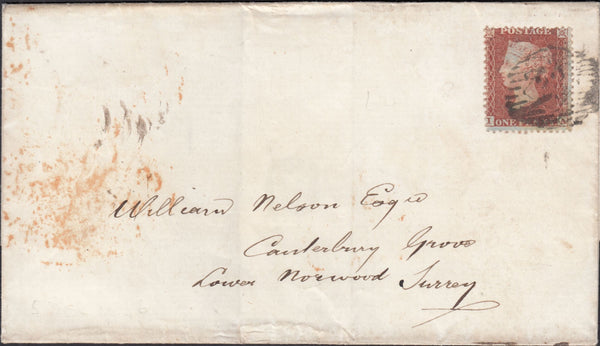 POSTAGE
ONE
William Nelson Esqre
Canterbury Grove
Lower Norwood Surrey